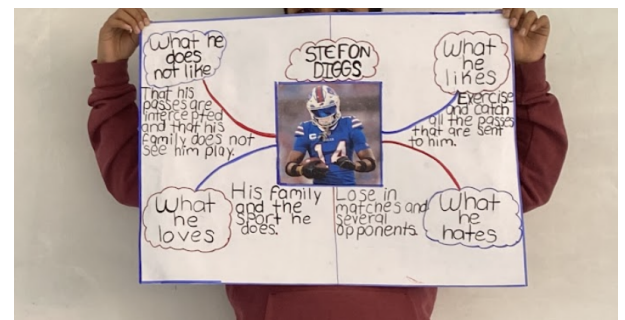 What he
does
not like
That his
passes are
intercepted
and that his
family does not
see him play.
STEFON
DIGGS
14
What
he
likes
Exercise
and catch
all the passes
that are sent
to him.
What
he
loves
His family
and the
sport he
does.
Lose in
matches and
several
opponents.
What
he
hates